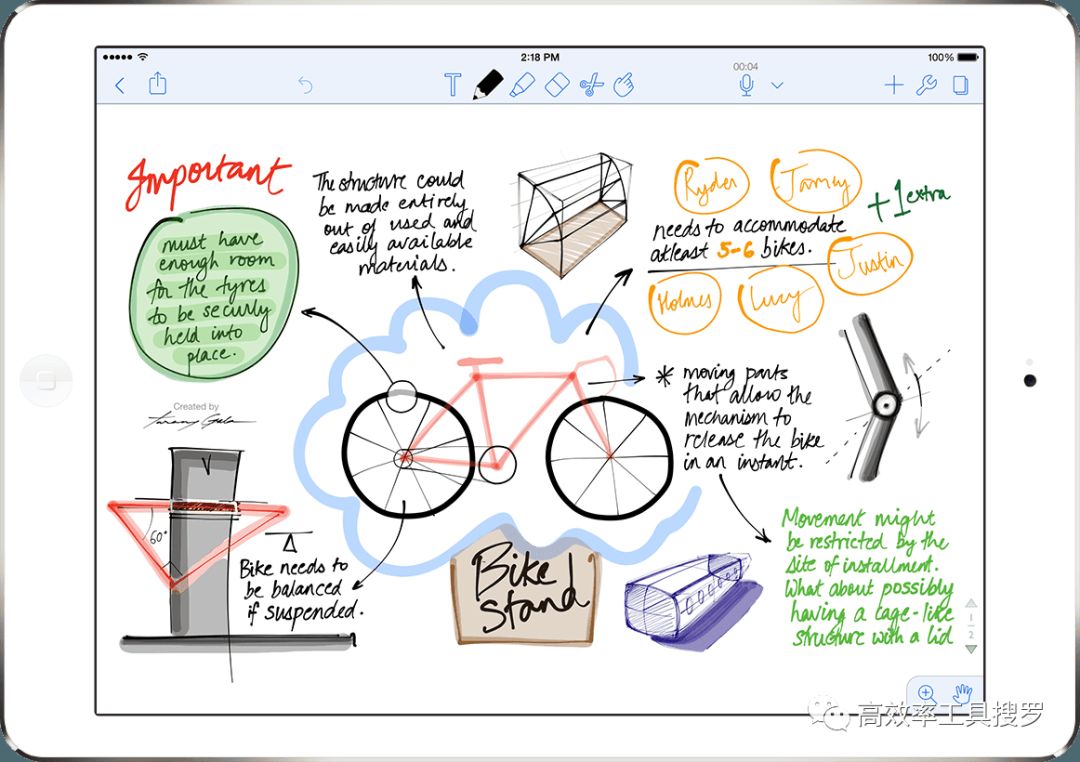 2:18 PM
100%
00:04
T
Important
must have
enough room
for the tyres
to be securly
held into
place.
The structure could
be made entirely
out of used and
easily available
materials.
Ryder
+1 extra
needs to accommodate
atleast 5-6 bikes.
Justin
Holmes
Lucy
* moving parts
that allow the
mechanism to
release the bike
in an instant.
Created by
60°
Bike needs to
be balanced
if suspended.
Bike
Stand
Movement might
be restricted by the
site of installment.
What about possibly
having a cage-like
structure with a lid
1
2
高效率工具搜罗